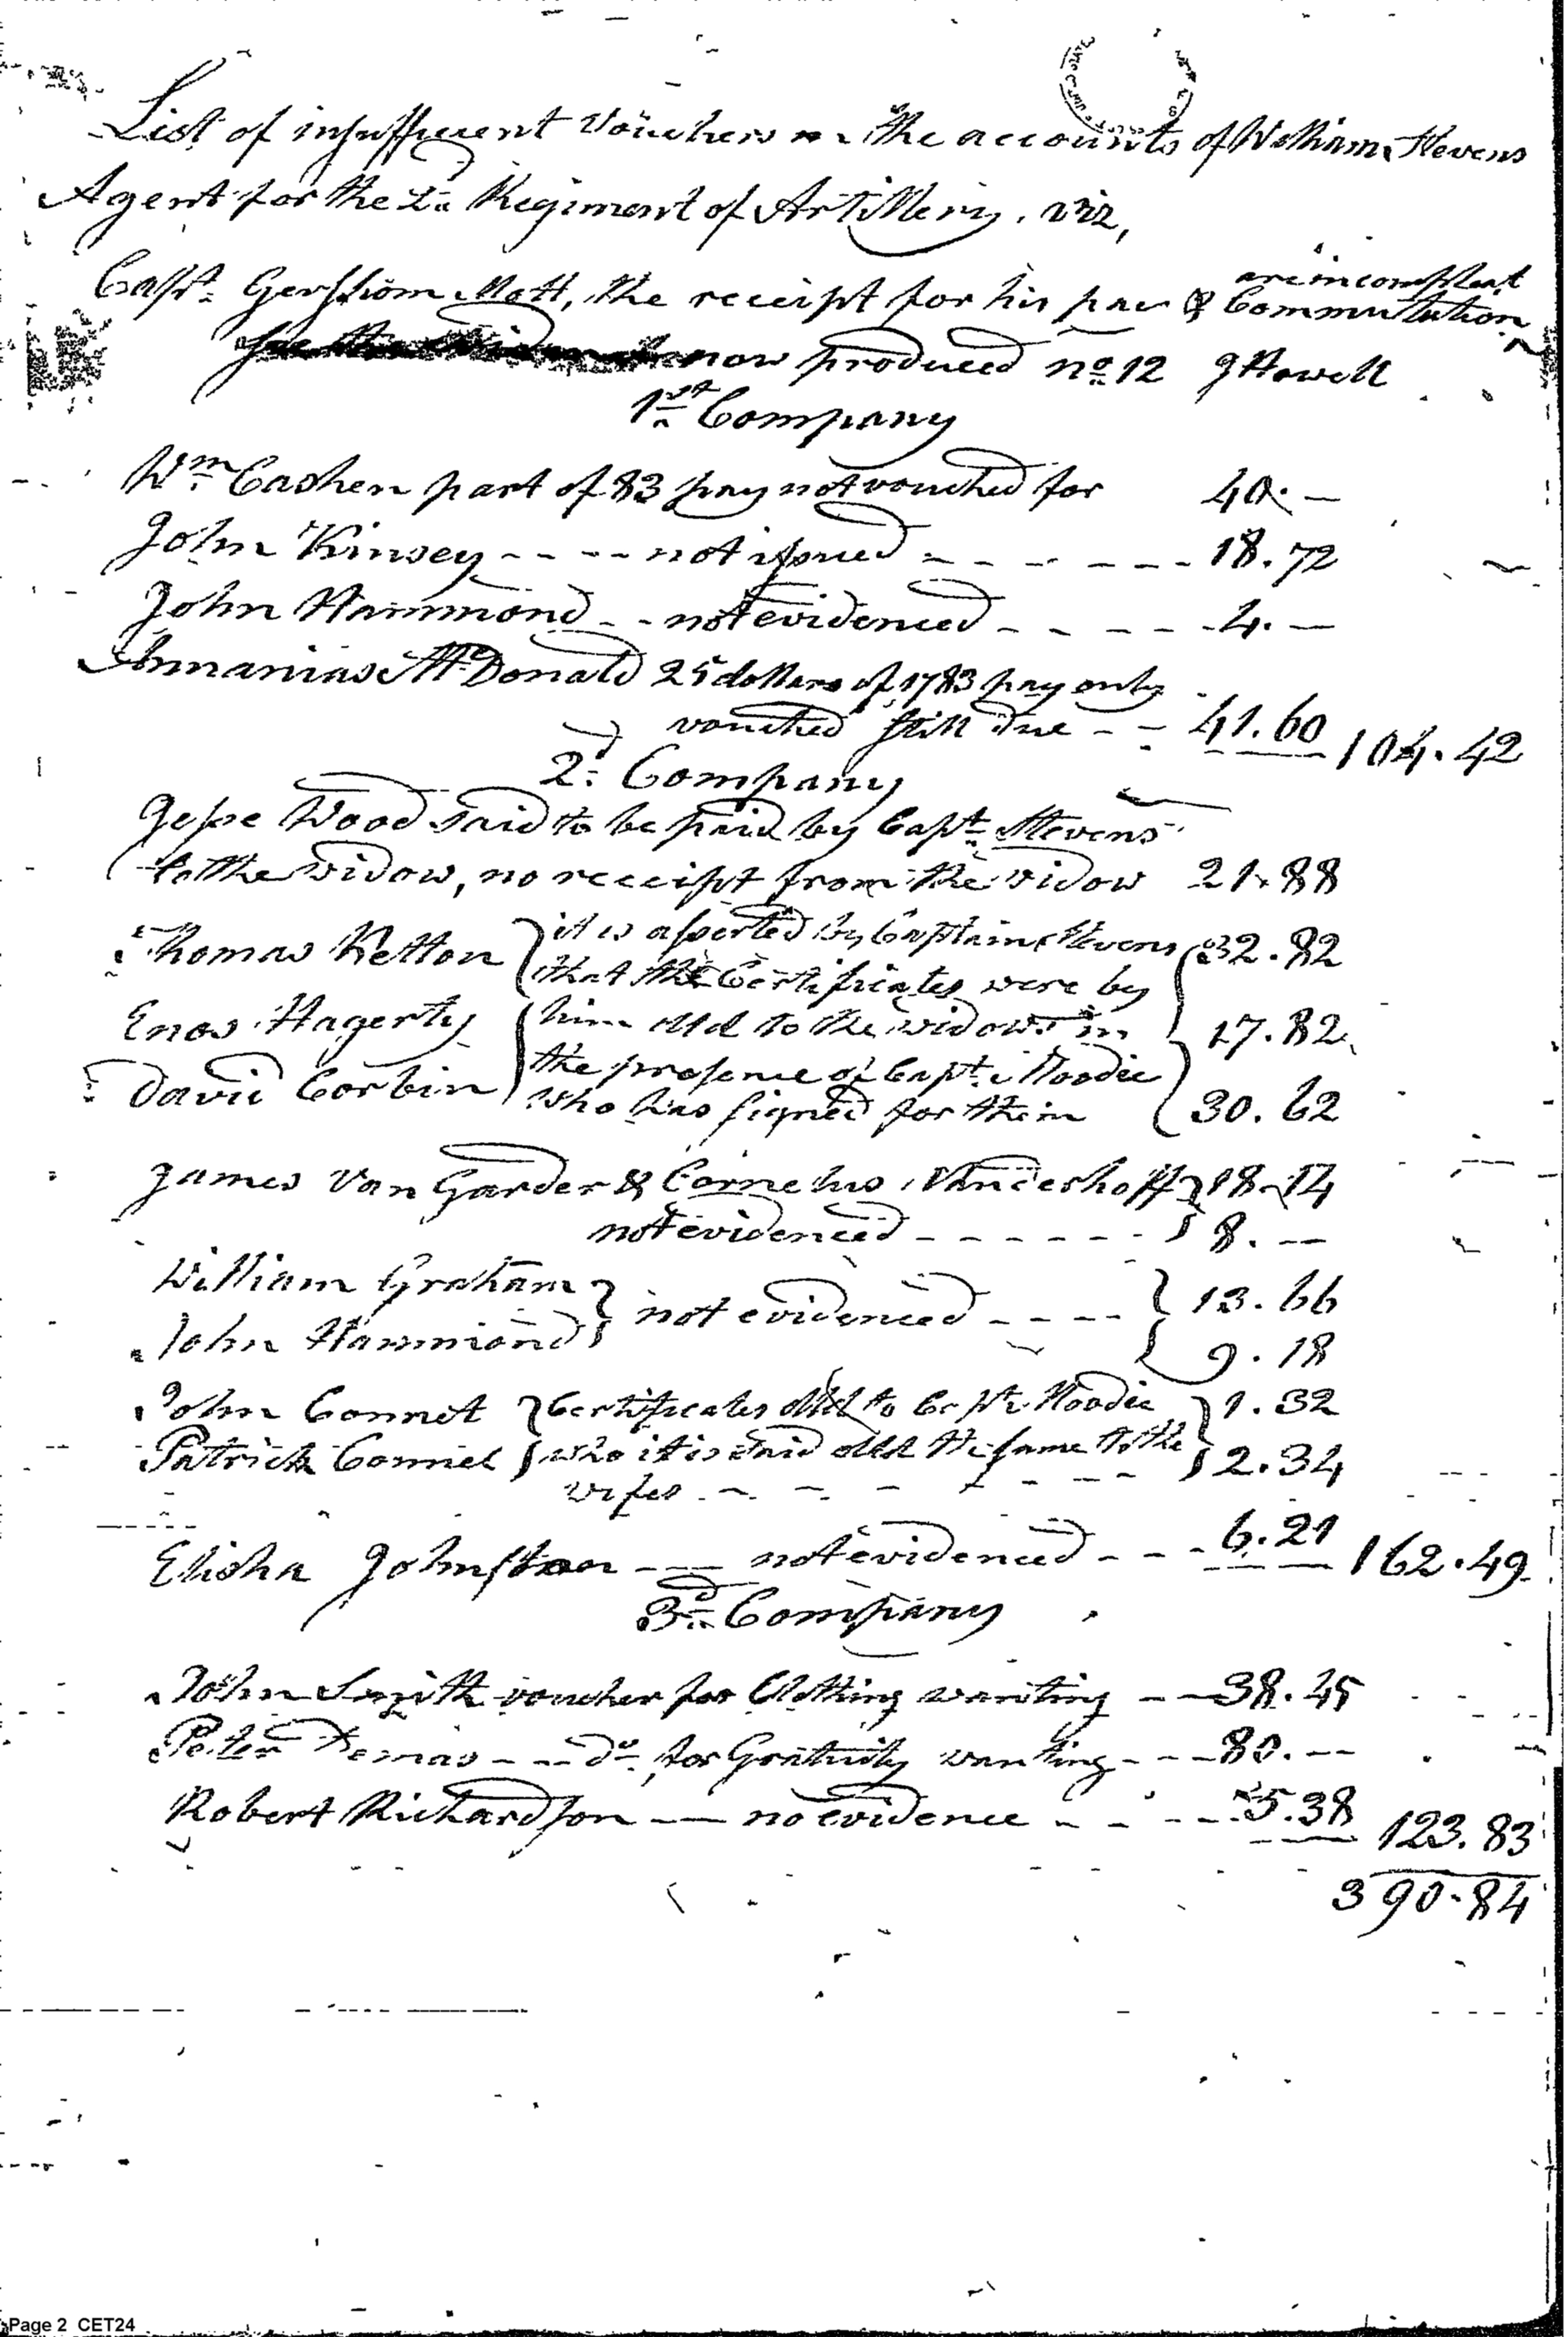 List of insufficient Vouchers in the accounts of William Stevens
Agent for the 2d Regiment of Artillery. viz,
are incompleat
Capt. Gershom Mott, the receipt for his pay & Commutation
now produced no 12 J Howell
1st Company
Wm Cashen part of 83 pay not vouched for 40. —
John Kinsey - - - - not issued - - - - - - 18.72
John Hammond - - not evidenced - - - - - 4. —
Annanias McDonald 25 dollars of 1783 pay only
vouched still due - - 41.60 104.42
2d Company
Jesse Wood said to be paid by Capt Stevens
to the widow, no receipt from the widow 21.88
Thomas Ketton } it is asserted by Captain Stevens { 32.82
that the Certificates were by
Enos Hagerty { him dld to the widows in 17.82
the presence of Capt. Moodie
David Corbin who has signed for them 30.62
James Van Garder & Cornelius Vanderhoff } 18.14
not evidenced - - - - - - } 8. —
William Graham } not evidenced - - - - } 13.66
John Hammond } { 9.18
John Connet } Certificates dld to Capt. Moodie } 1.32
Patrick Connel } who it is said dld the same to the } 2.34
wifes - - - - - - -
Elisha Johnston - - - not evidenced - - - 6.21 162.49
3d Company
John Smith voucher for Clothing wanting - - 38.45
Peter Demas - - - do for Gratuity wanting - - - 80. —
Robert Richardson - - - no evidence - - - - - 5.38 123.83
390.84
Page 2 CET24